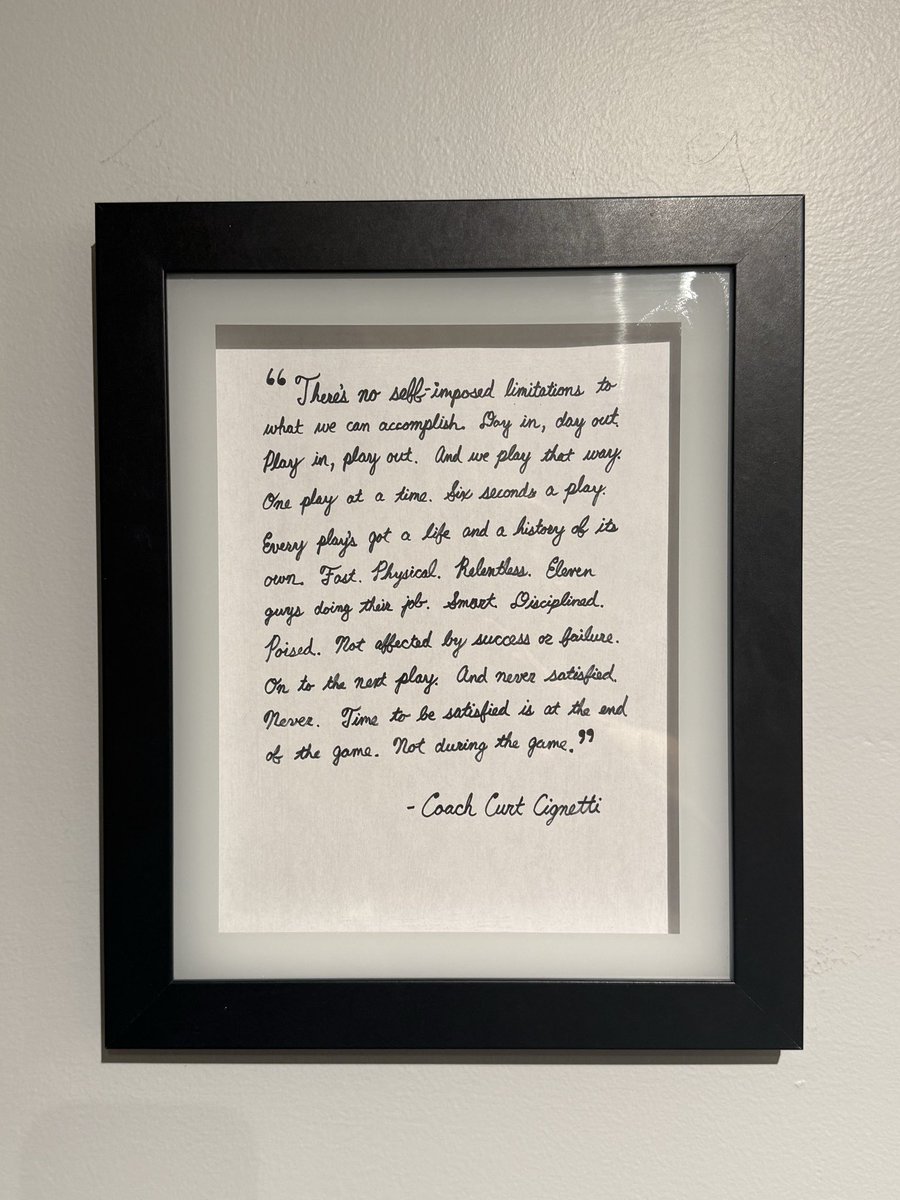 “There's no self-imposed limitations to
what we can accomplish. Day in, day out.
Play in, play out. And we play that way.
One play at a time. Six seconds a play.
Every play's got a life and a history of its
own. Fast. Physical. Relentless. Eleven
guys doing their job. Smart. Disciplined.
Poised. Not affected by success or failure.
On to the next play. And never satisfied.
Never. Time to be satisfied is at the end
of the game. Not during the game.”
- Coach Curt Cignetti